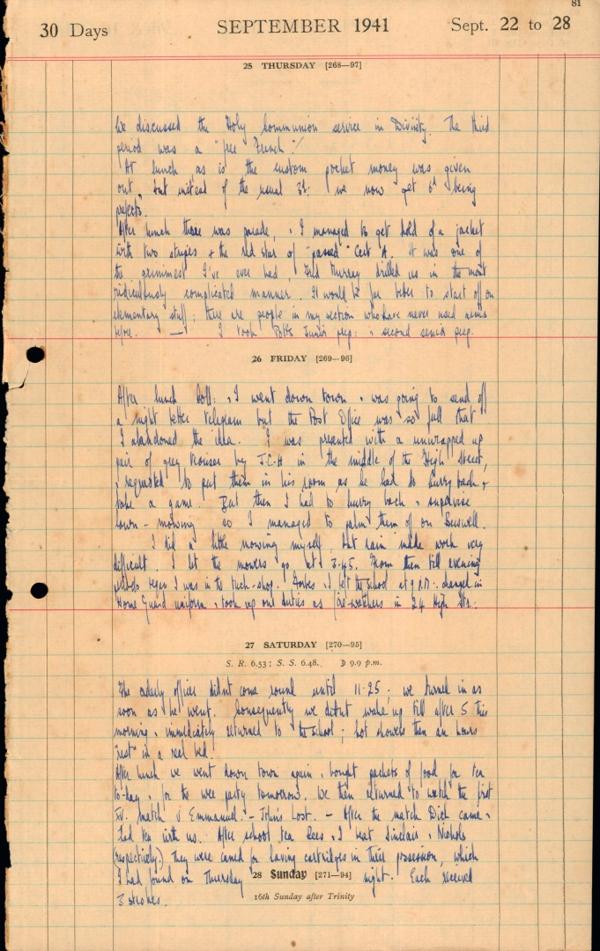 81
30 Days SEPTEMBER 1941 Sept. 22 to 28
25 THURSDAY [268—97]
We discussed the Holy Communion service in Divinity. The third
period was a "free French"
At lunch as is the custom pocket money was given
out, but instead of the usual 3d: we now get 6d being
prefects.
After lunch there was parade, & I managed to get hold of a jacket
with two stripes & the red star of "passed" Cert A. It was one of
the grimmest I've ever had, Murray drilled us in the most
ridiculously complicated manner. It would be far better to start off on
elementary stuff; there are people in my section who have never used arms
before. — I took Junior prep: & second senior prep.
26 FRIDAY [269—96]
After lunch & I went down town & was going to send off
a night letter telegram but the Post Office was so full that
I abandoned the idea. I was presented with a unwrapped up
pair of grey trousers by J.C.H in the middle of the High Street,
& requested to put them in his room as he had to hurry back &
take a game. But then I had to hurry back & supervise
lawn-mowing so I managed to palm them of on
I did a little mowing myself, but rain made work very
difficult. I let the mowers go at 3.45. From then till evening
began I was in the tuck-shop. & I left the school at 9 P.M. changed in
Home Guard uniform & took up our duties as fire-watchers in 24 High Str:
27 SATURDAY [270—95]
S. R. 6.53: S. S. 6.48. D 9.9 p.m.
The orderly officer didn't come round until 11-25; we turned in as
soon as he went. Consequently we didn't wake up till after 5 this
morning, & immediately returned to the school; hot showers then an hours
"rest" in a real bed.
After lunch we went down town again & bought packets of food for tea
to-day & for the wee party tomorrow. We then returned to watch the first
XV. match v Emmanuel. - John's Lost. - After the match Dick came &
had tea with us. After school tea & I beat Sinclair & Nichols
(respectively) they were caned for having cartridges in their possession, which
I had found on Thursday night. Each received
28 Sunday [271—94]
3 strokes.
16th Sunday after Trinity